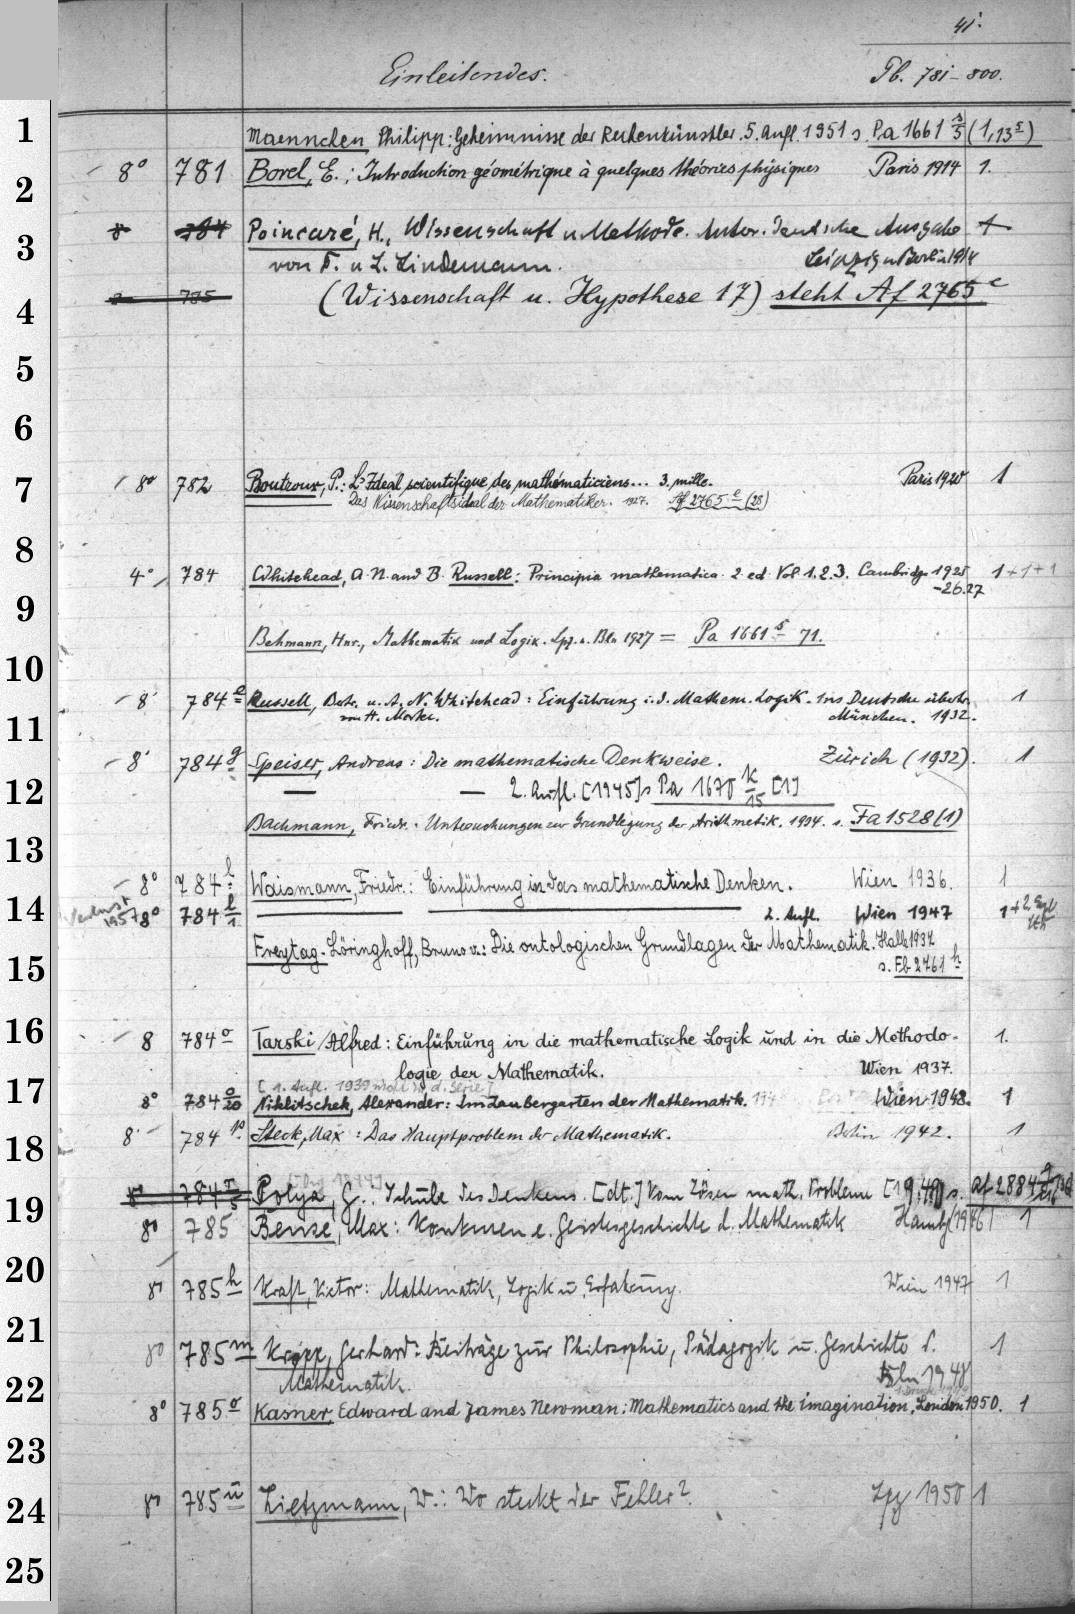 41.
Einleitendes. Pb. 781-800.
1 Maennchen Philipp: Geheimnisse der Rechenkünstler. 5. Aufl. 1951 s. Pa 1661 s/5 (1,13⁵)
2 8° 781 Borel, E.: Introduction géométrique à quelques théories physiques Paris 1914 1.
3 8 784 Poincaré, H., Wissenschaft u Methode. Autor. deutsche Ausgabe 1
von F. u L. Lindemann. Leipzig u Berlin 1914
4 8 785 (Wissenschaft u. Hypothese 17) steht Af 2765 c
5
6
7 8° 782 Boutroux, P.: L'Idéal scientifique des mathématiciens... 3. mille. Paris 1920 1
Das Wissenschaftsideal der Mathematiker. 1927. Af 2765 e (28)
8 4° 784 Whitehead, A. N. and B. Russell: Principia mathematica. 2 ed. Vol 1.2.3. Cambridge 1925 1+1+1
-26.27
9
Behmann, Hnr., Mathematik und Logik. Lpz. u. Bln 1927 = Pa 1661 5 71.
10 8° 784 e Russell, Betr. u. A. N. Whitehead: Einführung i. d. Mathem. Logik. Ins Deutsche übertr. 1
11 von H. Mokre. München. 1932.
8° 784 g Speiser, Andreas: Die mathematische Denkweise. Zürich (1932). 1
12 — 2. Aufl. [1945] s Pa 1670 k/15 [1]
Bachmann, Friedr.: Untersuchungen zur Grundlegung der Arithmetik. 1934. s. Fa 1528 (1)
13
8° 784 l Waismann, Friedr.: Einführung in das mathematische Denken. Wien 1936. 1
14 1957 8° 784 l/1 2. Aufl. Wien 1947 1+2.
15 Freytag-Löringhoff, Bruno v.: Die ontologischen Grundlagen der Mathematik. Halle 1937
s. Fb 2761 h
16 8 784 o Tarski, Alfred: Einführung in die mathematische Logik und in die Methodo- 1.
logie der Mathematik. Wien 1937.
17 [1. Aufl. 1939 d. Serie]
8° 784 o/20 Niklitschek, Alexander: Im Zaubergarten der Mathematik. Wien 1948. 1
18 8° 784 p Steck, Max: Das Hauptproblem der Mathematik. Berlin 1942. 1
19 8° 784 Polya, G.: Schule des Denkens. [dt.] Vom Lösen math. Probleme [1949] s. Af 2884
8° 785 Bense, Max: Konturen e. Geistesgeschichte d. Mathematik Hambg (1946) 1
20 8° 785 h Kraft, Victor: Mathematik, Logik u. Erfahrung. Wien 1947 1
21 8° 785 m Kropp, Gerhard: Beiträge zur Philosophie, Pädagogik u. Geschichte d. 1
22 Mathematik. Bln 1948
8° 785 o Kasner, Edward and James Newman: Mathematics and the imagination. London 1950. 1
23
24 8° 785 u Lietzmann, W.: Wo steckt der Fehler? Lpz 1950 1
25